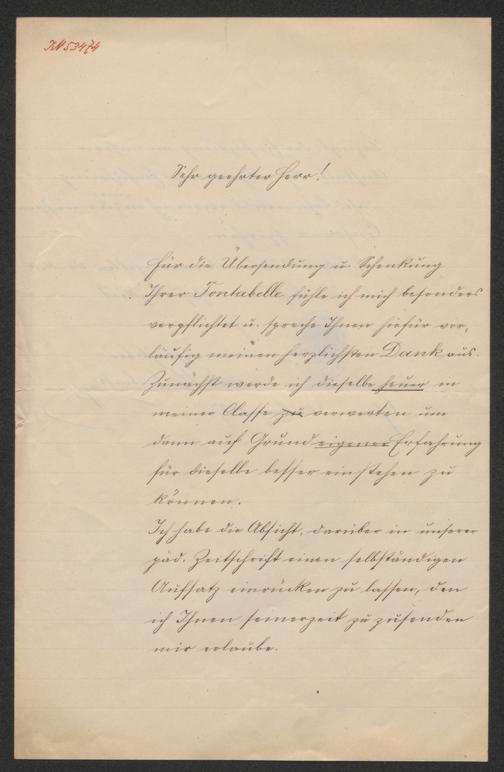 IN 53474
Sehr geehrter Herr!
Für die Übersendung u. Schenkung
Ihrer Tontabelle fühle ich mich besonders
verpflichtet u. spreche Ihnen hiefür vor-
läufig meinen herzlichsten Dank aus.
Zunächst werde ich dieselbe heuer in
meiner Classe zu verwerten um
dann auf Grund eigener Erfahrung
für dieselbe besser einstehen zu
können.
Ich habe die Absicht, darüber in unserer
päd. Zeitschrift einen selbständigen
Aufsatz einrücken zu lassen, den
ich Ihnen seinerzeit zuzusenden
mir erlaube.